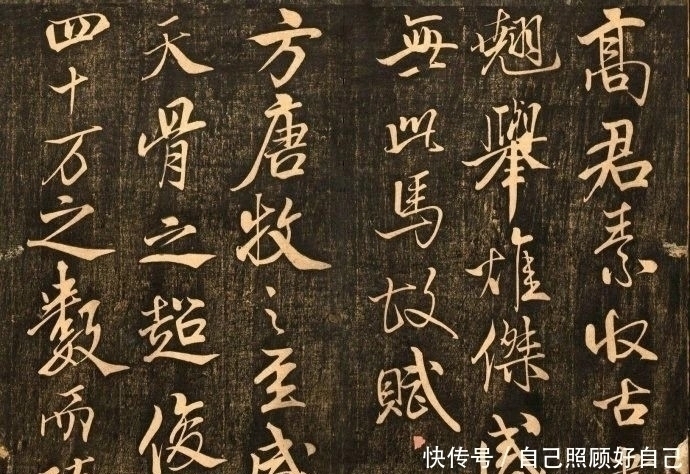 高君素收古
翹舉雄傑
無此馬故賦
方唐牧之至
天骨之超俊
四十万之數而
快传号/自己照顾好自己